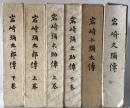 岩崎彌太郎傳 下巻
岩崎彌太郎傳 上巻
岩崎彌之助傳 上巻
岩崎彌之助傳 下巻
岩崎小彌太傳
岩崎久彌傳